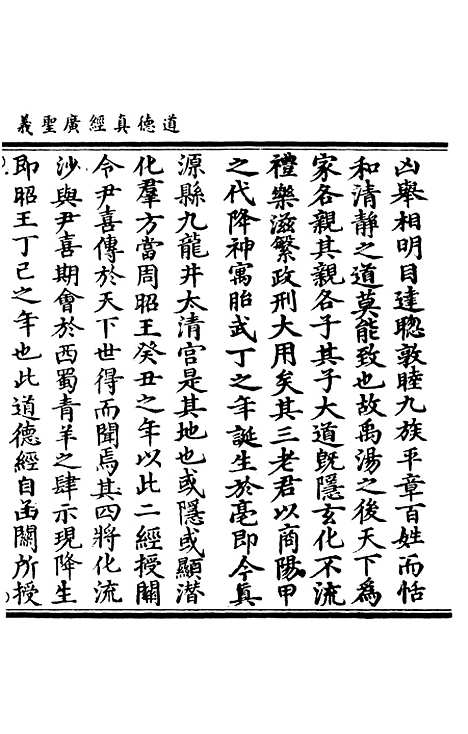 道德真經廣聖義
凶舉相明目達聰敦睦九族平章百姓而恬
和清靜之道莫能致也故禹湯之後天下爲
家各親其親各子其子大道旣隱玄化不流
禮樂滋繁政刑大用矣其三老君以商陽甲
之代降神寓胎武丁之年誕生於亳即今眞
源縣九龍井太清宮是其地也或隱或顯潛
化羣方當周昭王癸丑之年以此二經授關
令尹喜傳於天下世得而聞焉其四將化流
沙與尹喜期會於西蜀青羊之肆示現降生
即昭王丁巳之年也此道德經自函關所授